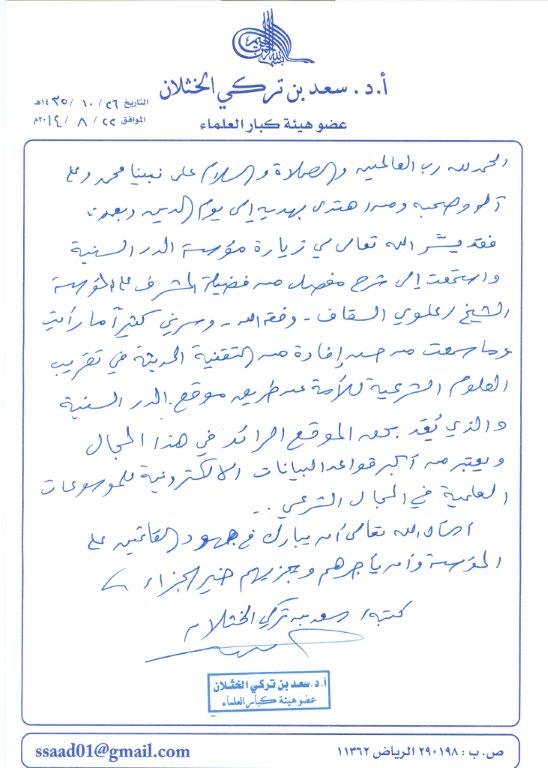 أ.د. سعد بن تركي الخثلان
عضو هيئة كبار العلماء
التاريخ ٢٦/ ١٠ / ١٤٣٥هـ
الموافق ٢٢/ ٨ / ٢٠١٤م
الحمد لله رب العالمين والصلاة والسلام على نبينا محمد وعلى
آله وصحبه ومن اهتدى بهديه إلى يوم الدين وبعد:
فقد يسّر الله تعالى لي زيارة مؤسسة الدرر السنية
واستمعت إلى شرح مفصل من فضيلة المشرف على المؤسسة
الشيخ / علوي السقاف - وفقه الله - وسرني كثيراً ما رأيت
وما سمعت من حسن إفادة من التقنية الحديثة في تقريب
العلوم الشرعية للأمة عن طريق موقع الدرر السنية
والذي يُعَد بحق الموقع الرائد في هذا المجال
ويعتبر من أكبر قواعد البيانات الالكترونية للموسوعات
العلمية في المجال الشرعي ..
أسأل الله تعالى أن يبارك في جهود القائمين على
المؤسسة وأن يأجرهم ويجزيهم خير الجزاء
كتبه / سعد بن تركي الخثلان
أ.د. سعد بن تركي الخثلان
عضو هيئة كبار العلماء
ص.ب : ٢٩٠١٩٨ الرياض ١١٣٦٢
ssaad01@gmail.com